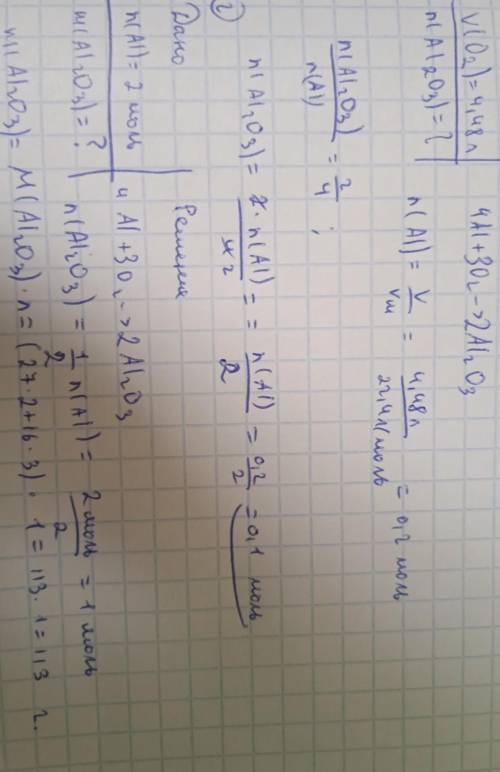 V(O₂)=4,48л
n(Al₂O₃)=?
4Al+3O₂->2Al₂O₃
n(Al) = V/Vm = 4,48л/22,4л/моль = 0,2 моль
n(Al₂O₃)/n(Al) = 2/4 ;
n(Al₂O₃) = 2·n(Al)/4 2 = = n(Al)/2 = 0,2/2 = 0,1 моль
2
Дано
n(Al)=2 моль
m(Al₂O₃)=?
Решение
4 Al+3O₂->2Al₂O₃
n(Al₂O₃) = 1/2 n(Al) = 2 моль/2 = 1 моль
m(Al₂O₃)= M(Al₂O₃)·n=(27·2+16·3)·1=113·1=113 г.